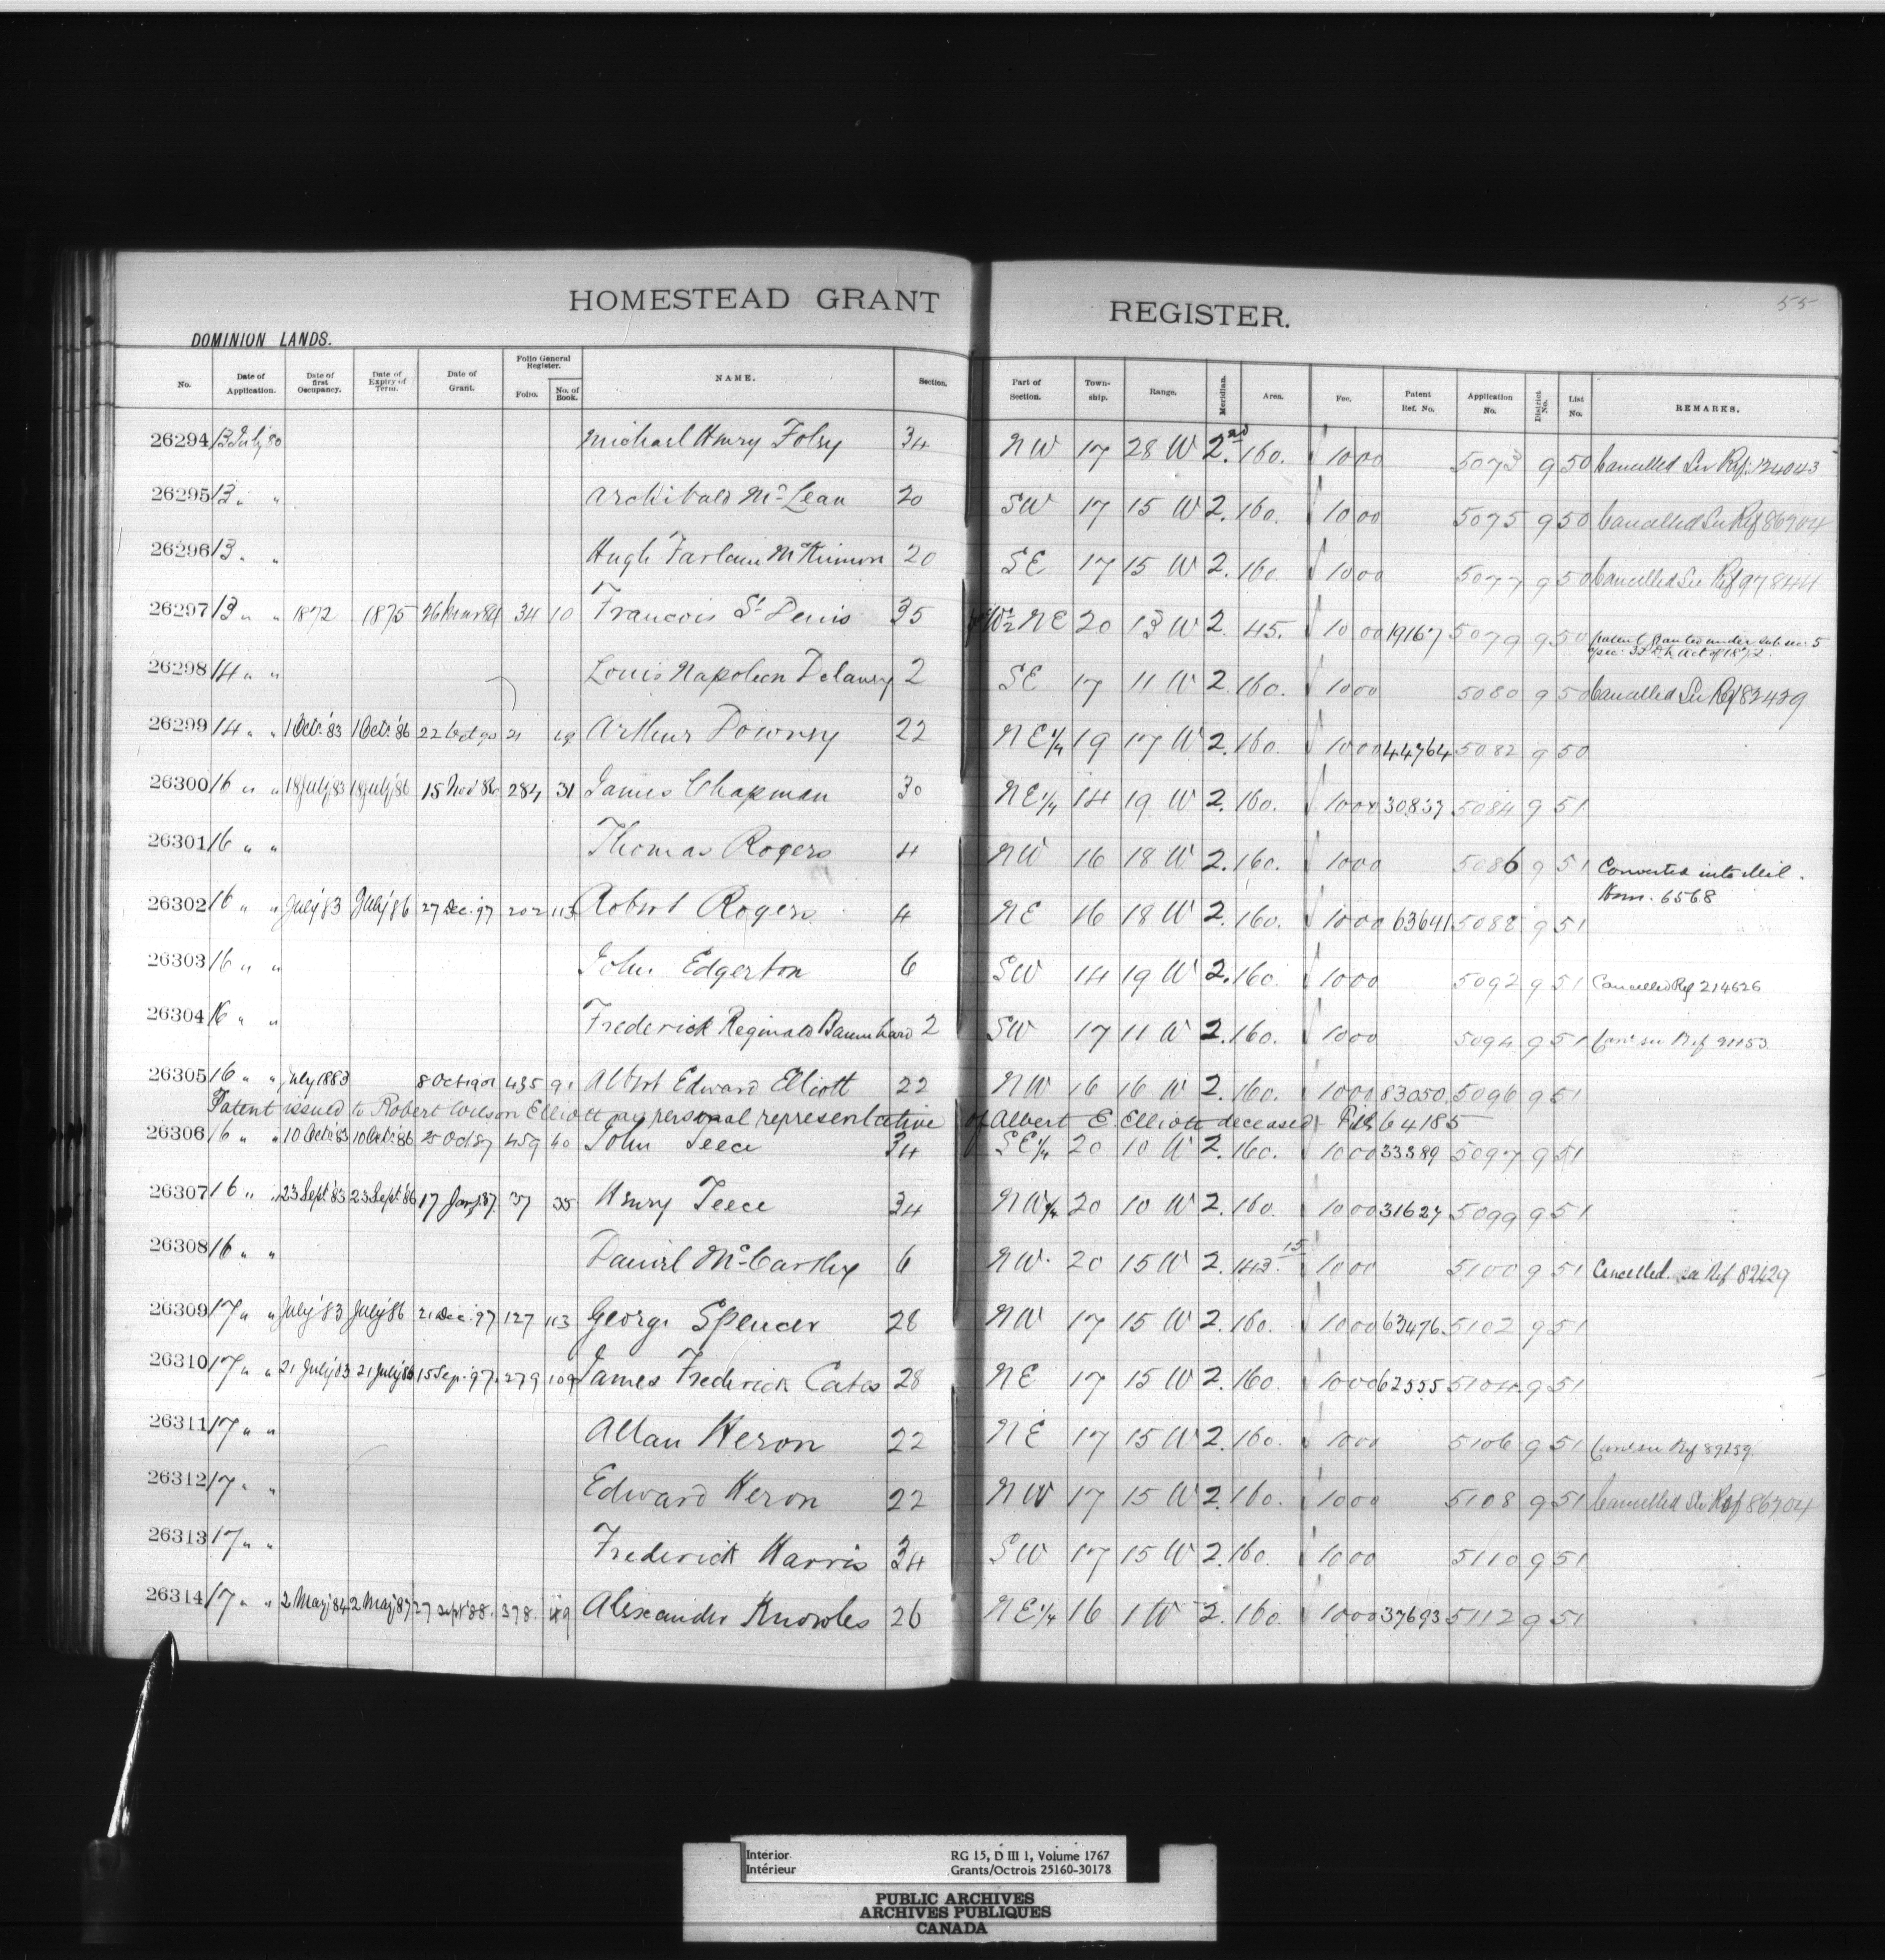 55
HOMESTEAD GRANT REGISTER.
DOMINION LANDS.
No. Date of Application. Date of first Occupancy. Date of Expiry of Term. Date of Grant. Folio General Register. Folio. No. of Book. NAME. Section. Part of Section. Town-ship. Range. Meridian. Area. Fee. Patent Ref. No. Application No. District No. List No. REMARKS.
26294 13 July 80 Michael Henry Foley 34 NW 17 28 W 2nd 160. 10 00 5073 9 50 Cancelled See Ref: 124043
26295 13 " " Archibald McLean 20 SW 17 15 W 2. 160. 10 00 5075 9 50 Cancelled See Ref 86704
26296 13 " " Hugh Farlain McKinnon 20 SE 17 15 W 2. 160. 10 00 5077 9 50 Cancelled See Ref 97844
26297 13 " " 1872 1875 26 Mar 84 34 10 Francois St Denis 35 W½ NE 20 13 W 2. 45. 10 00 19167 5079 9 50 patent granted under sub sec: 5
sec: 33 D.L. Act of 1872.
26298 14 " " Louis Napoleon Delaney 2 SE 17 11 W 2. 160. 10 00 5080 9 50 Cancelled See Ref 82429
26299 14 " " 1 Oct: '83 1 Oct: '86 22 Oct 90 21 Arthur Downey 22 NE¼ 19 17 W 2. 160. 10 00 44764 5082 9 50
26300 16 " " 18 July '83 18 July '86 15 Nov 86 284 31 James Chapman 30 NE¼ 14 19 W 2. 160. 10 00 30837 5084 9 51
26301 16 " " Thomas Rogers 4 NW 16 18 W 2. 160. 10 00 5086 9 51 Converted into Mil.
Hom. 6568
26302 16 " " July '83 July '86 27 Dec. '97 202 113 Robert Rogers 4 NE 16 18 W 2. 160. 10 00 63641 5088 9 51
26303 16 " " John Edgerton 6 SW 14 19 W 2. 160. 10 00 5092 9 51 Cancelled Ref 214626
26304 16 " " Frederick Reginald Baumhard 2 SW 17 11 W 2. 160. 10 00 5094 9 51 Canc see Ref 91153
26305 16 " " July 1883 8 Oct 1901 435 91 Albert Edward Elliott 22 NW 16 16 W 2. 160. 10 00 83050 5096 9 51
Patent issued to Robert Wilson Elliott as personal representative of Albert E. Elliott deceased File 64185
26306 16 " " 10 Oct: '83 10 Oct: '86 25 Oct 87 459 40 John Teece 34 SE¼ 20 10 W 2. 160. 10 00 33389 5097 9 51
26307 16 " " 23 Sept '83 23 Sept '86 17 Jany '87. 37 35 Henry Teece 34 NW¼ 20 10 W 2. 160. 10 00 31627 5099 9 51
26308 16 " " Daniel McCarthy 6 NW. 20 15 W 2. 143.15 10 00 5100 9 51 Cancelled. see Ref 82429
26309 17 " " July '83 July '86 21 Dec. '97 127 113 George Spencer 28 NW 17 15 W 2. 160. 10 00 63476 5102 9 51
26310 17 " " 21 July '83 21 July '86 15 Sep. '97. 279 109 James Frederick Cates 28 NE 17 15 W 2. 160. 10 00 62555 5104 9 51
26311 17 " " Allan Heron 22 NE 17 15 W 2. 160. 10 00 5106 9 51 Canc see Ref 89259
26312 17 " " Edward Heron 22 NW 17 15 W 2. 160. 10 00 5108 9 51 Cancelled See Ref 86704
26313 17 " " Frederick Harris 34 SW 17 15 W 2. 160. 10 00 5110 9 51
26314 17 " " 2 May '84 2 May '87 27 Sept '88. 378. 49 Alexander Knowles 26 NE¼ 16 1 W 2. 160. 10 00 37693 5112 9 51
Interior RG 15, D III 1, Volume 1767
Intérieur Grants/Octrois 25160-30178
PUBLIC ARCHIVES
ARCHIVES PUBLIQUES
CANADA